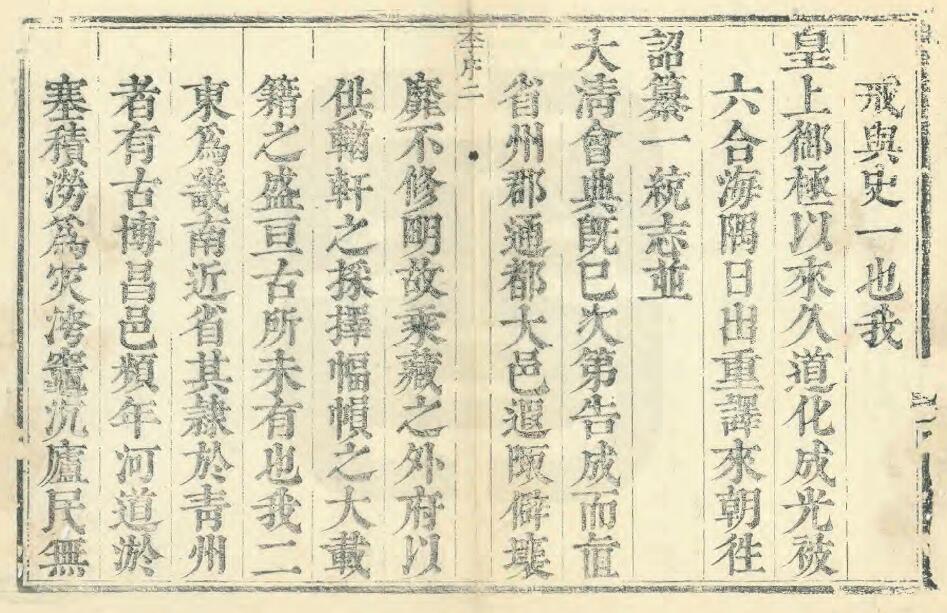 戒與史一也我
皇上御極以來久道化成光被
六合海隅日出重譯來朝往
詔纂一統志並
大清會典既已次第告成而直
省州郡通都大邑遐陬僻壤
李序二
靡不修明故乘藏之外府以
供輶軒之採擇幅幀之大載
籍之盛亘古所未有也我二
東爲畿南近省其隷於靑州
者有古博昌邑頻年河道淤
塞積澇爲灾洿竈沉廬民無